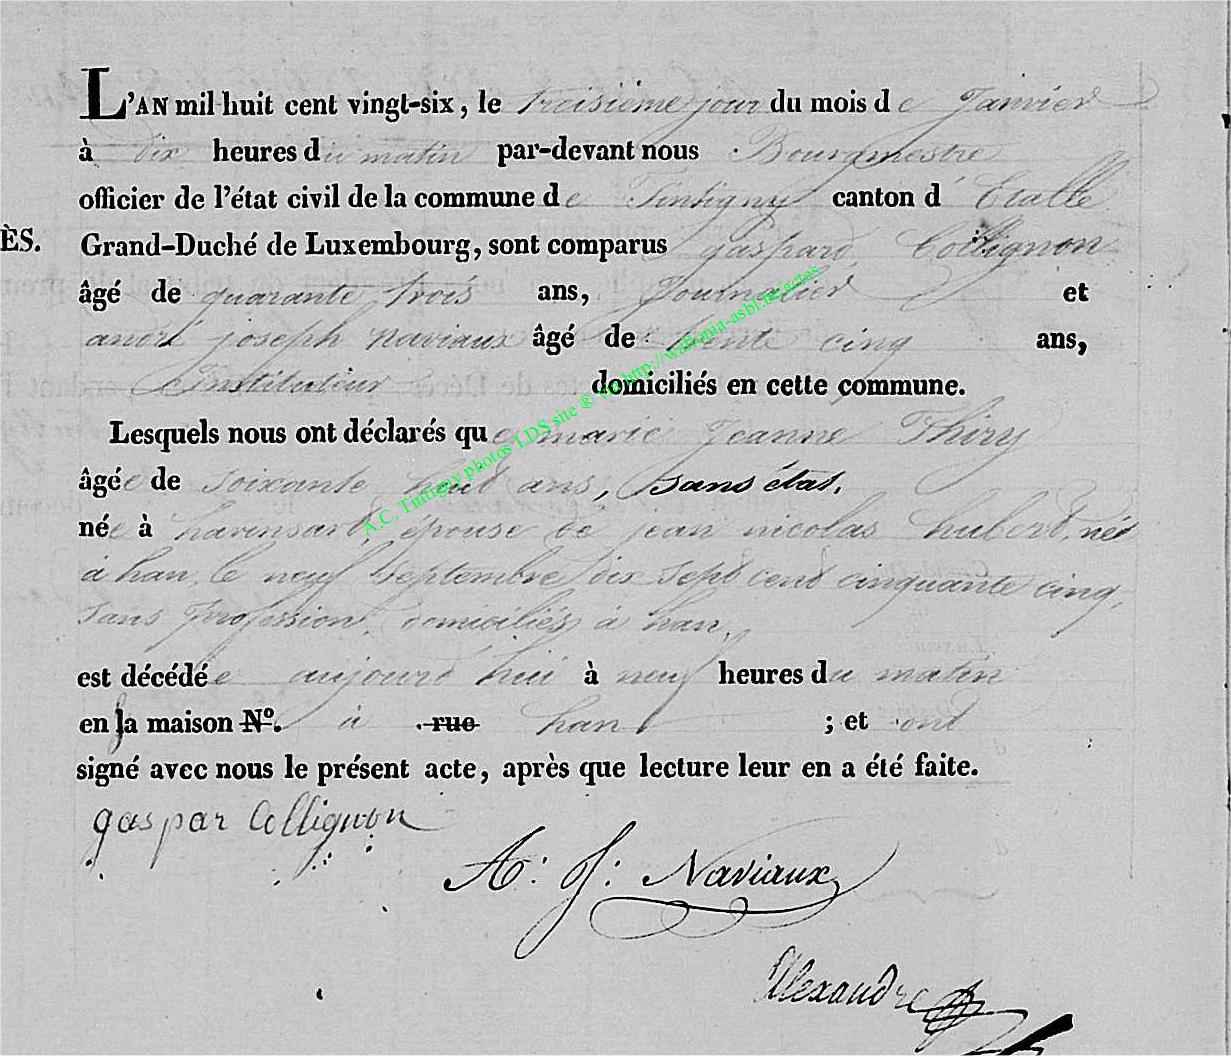 L'AN mil huit cent vingt-six, le troisième jour du mois de Janvier
à dix heures du matin par-devant nous Bourgmestre
officier de l'état civil de la commune de Tintigny canton d'Etalle
ÈS.
Grand-Duché de Luxembourg, sont comparus gaspard Collignon
âgé de quarante trois ans, Journalier et
andré joseph naviaux âgé de trente cinq ans,
Instituteur domiciliés en cette commune.
Lesquels nous ont déclarés que marie Jeanne Thiry
âgée de soixante huit ans, sans état.
née à harensart, épouse de jean nicolas hubert, né
à han, le neuf Septembre dix sept cent cinquante cinq,
sans profession, domiciliés à han,
est décédée aujourd'hui à neuf heures du matin
en la maison N°. à rue han ; et ont
signé avec nous le présent acte, après que lecture leur en a été faite.
gaspar Collignon
A: J: Naviaux
Alexandre
A.C. Tintigny photos LDS site ® via http://wallonia-asbl.be/actes